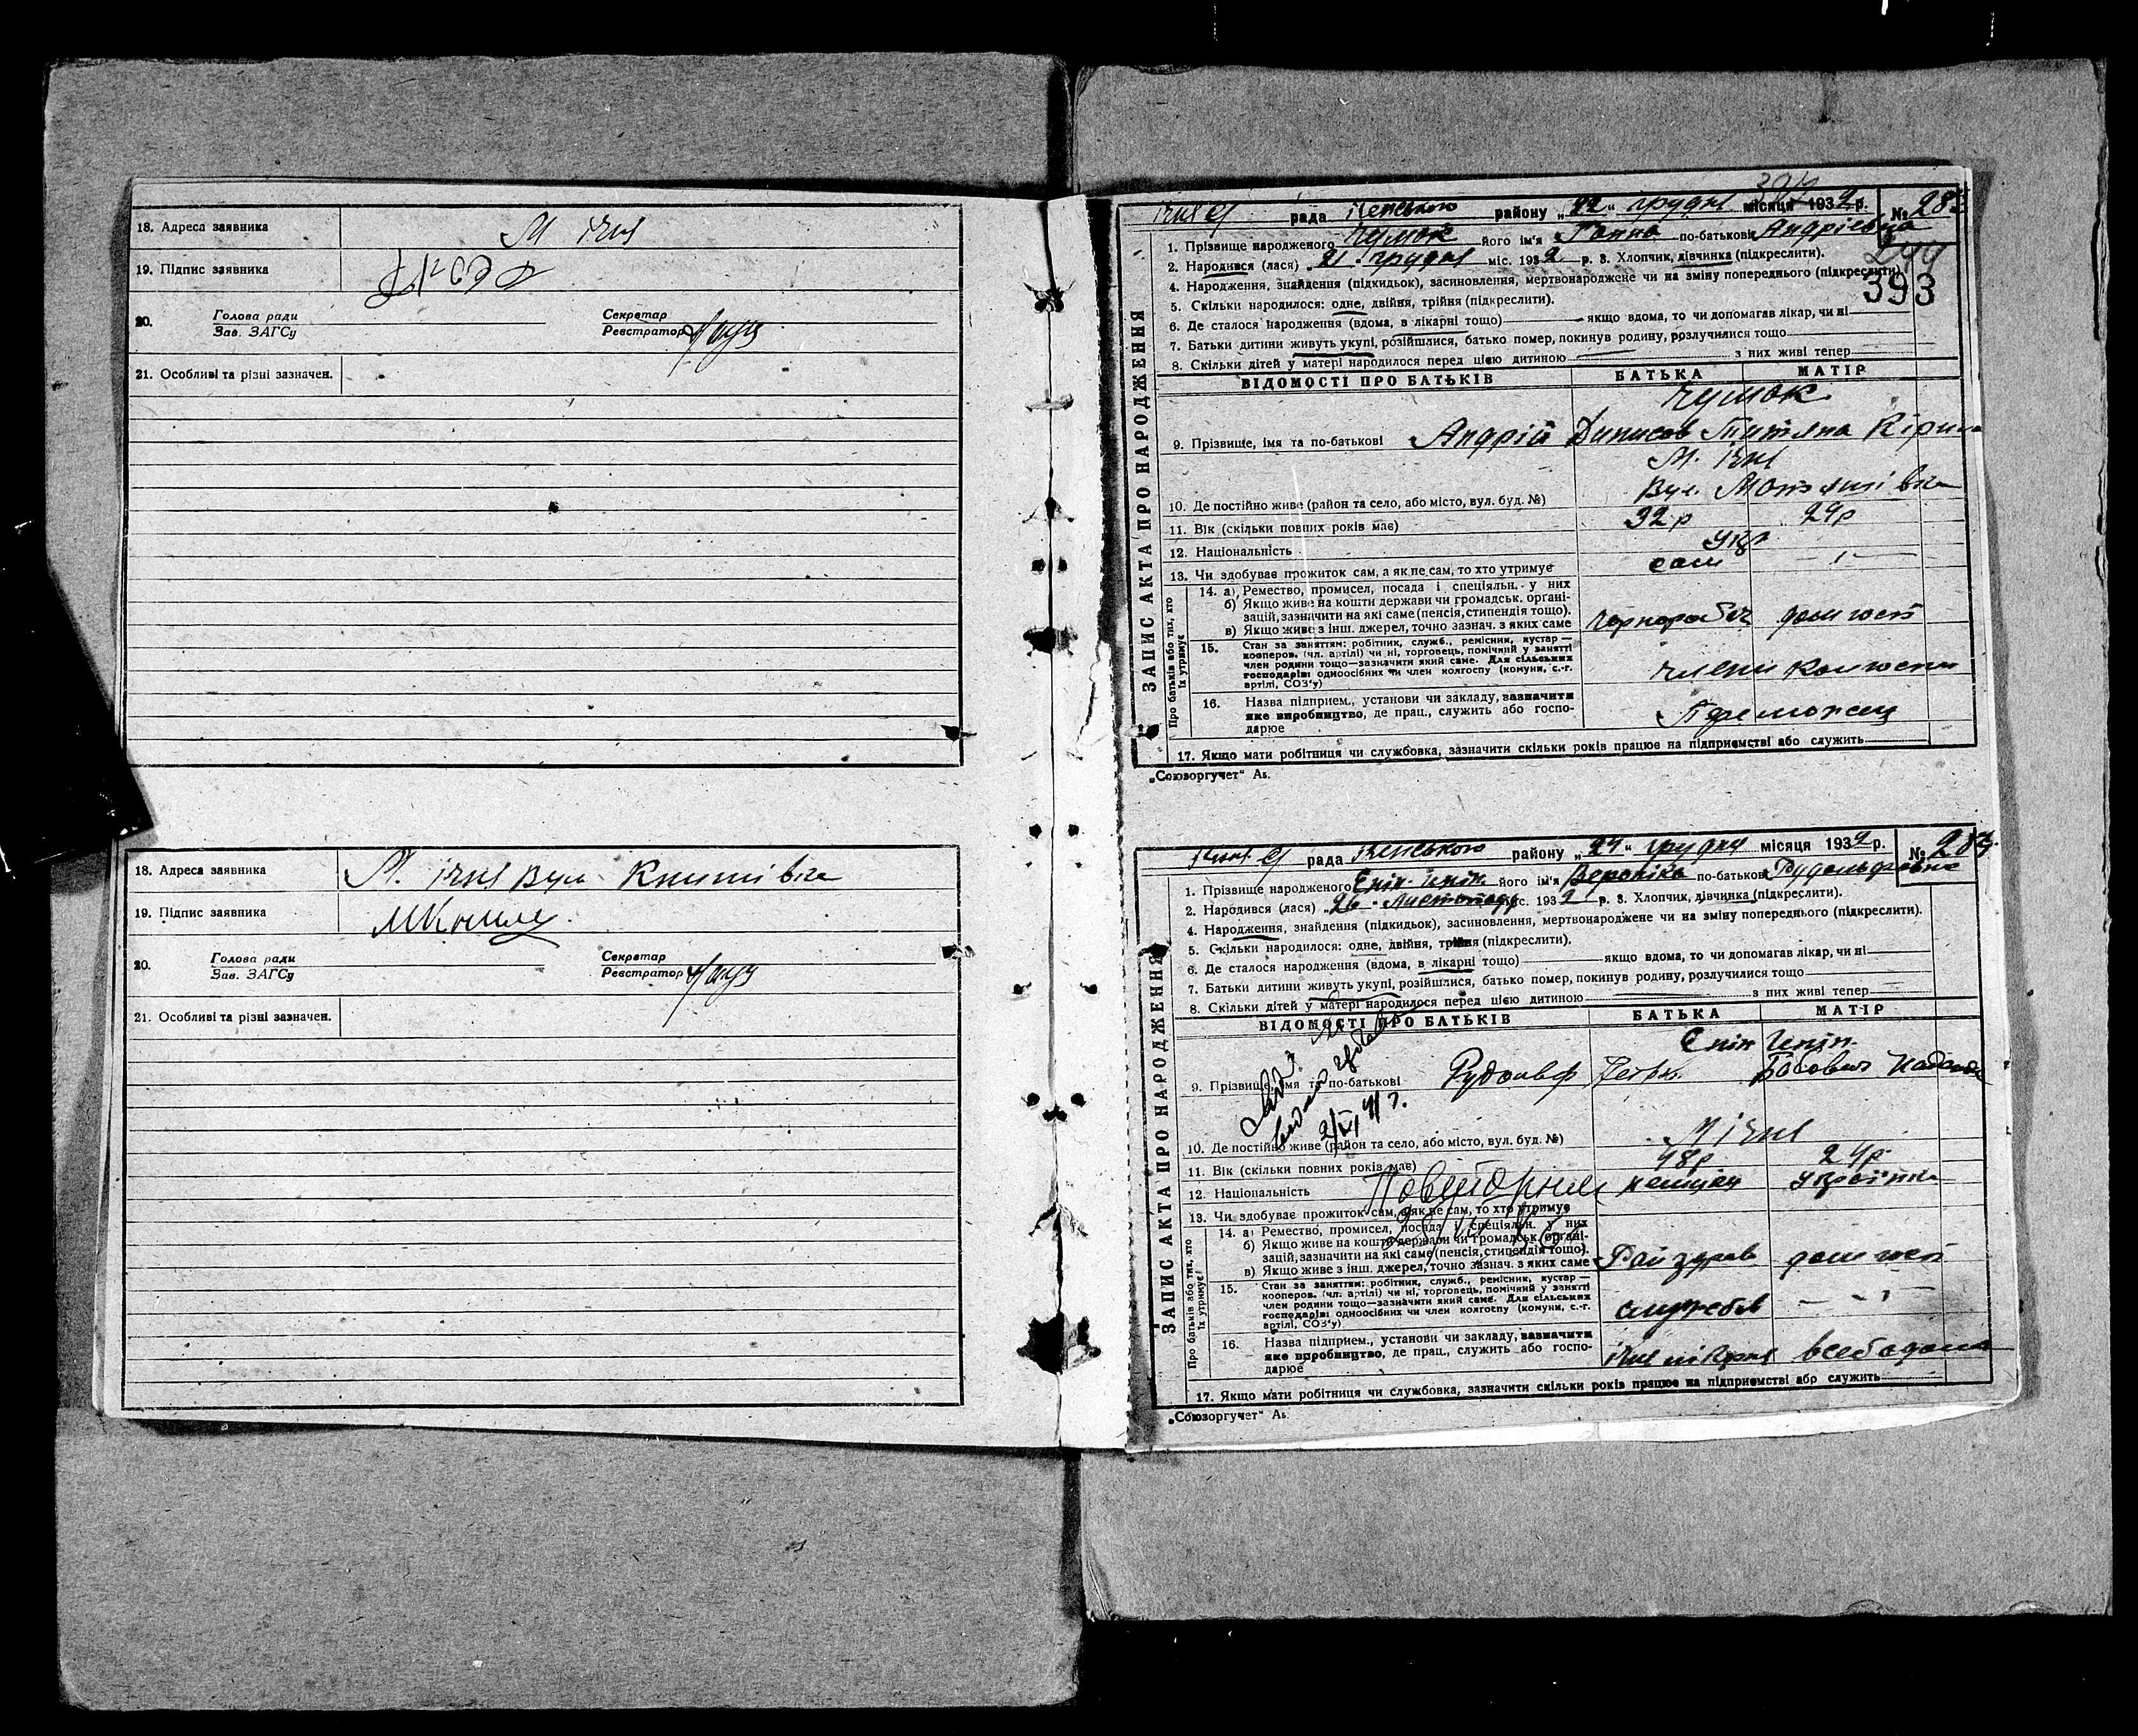 18. Адреса заявника М Ічня
19. Підпис заявника
20. Голова ради
Зав. ЗАГСу
Секретар
Реєстратор
21. Особливі та різні зазначен.
18. Адреса заявника М. Ічня Вул
19. Підпис заявника
20. Голова ради
Зав. ЗАГСу
Секретар
Реєстратор
21. Особливі та різні зазначен.
ЗАПИС АКТА ПРО НАРОДЖЕННЯ
рада Іченського району „22“ грудня місяця 1932 р. № 283
1. Прізвище народженого Чумак його ім'я Ганна по-батькові Андріевна
244
2. Народився (лася) „21“ грудня міс. 1932 р. 3. Хлопчик, дівчинка (підкреслити).
4. Народження, знайдення (підкидьок), засиновлення, мертвонароджене чи на зміну попереднього (підкреслити)
393
5. Скільки народилося: одне, двійня, трійня (підкреслити).
6. Де сталося народження (вдома, в лікарні тощо) — якщо вдома, то чи допомагав лікар, чи ні
7. Батьки дитини живуть укупі, розійшлися, батько помер, покинув родину, розлучилися тощо
8. Скільки дітей у матері народилося перед цією дитиною — з них живі тепер
ВІДОМОСТІ ПРО БАТЬКІВ БАТЬКА МАТІР
Чумак
9. Прізвище, імя та по-батькові Андрій Динисов Титяна
М. Ічня
10. Де постійно живе (район та село, або місто, вул. буд. №) Вул.
11. Вік (скільки повних років має) 32 р 29 р
12. Національність Укр
13. Чи здобуває прожиток сам, а як не сам, то хто утримує сами
Про батьків або тих, хто їх утримує
14. а) Ремество, промисел, посада і спеціяльн. у них
б) Якщо живе на кошти держави чи громадськ. органі-
зацій, зазначити на які саме (пенсія, стипендія тощо).
в) Якщо живе з інш. джерел, точно зазнач. з яких саме чорнороб дом госп
15. Стан за заняттям: робітник, служб., ремісник, кустар —
кооперов. (чл. артілі) чи ні, торговець, помічний у занятті
член родини тощо—зазначити який саме. Для сільських
господарів: одноосібних чи член колгоспу (комуни, с.-г.
артілі, СОЗ'у) члени колгоспу
16. Назва підприєм., установи чи закладу, зазначити
яке виробництво, де прац., служить або госпо-
дарює Переможець
17. Якщо мати робітниця чи службовка, зазначити скільки років працює на підприємстві або служить
„Союзоргучет“ Аз.
ЗАПИС АКТА ПРО НАРОДЖЕННЯ
рада Іченського району „24“ грудня місяця 1932 р. №
1. Прізвище народженого його ім'я Вероніка по-батькові Рудольфовна
2. Народився (лася) „26“ Листопаду міс. 1932 р. 3. Хлопчик, дівчинка (підкреслити).
4. Народження, знайдення (підкидьок), засиновлення, мертвонароджене чи на зміну попереднього (підкреслити).
5. Скільки народилося: одне, двійня, трійня (підкреслити).
6. Де сталося народження (вдома, в лікарні тощо) — якщо вдома, то чи допомагав лікар, чи ні
7. Батьки дитини живуть укупі, розійшлися, батько помер, покинув родину, розлучилися тощо
8. Скільки дітей у матері народилося перед цією дитиною — з них живі тепер
ВІДОМОСТІ ПРО БАТЬКІВ БАТЬКА МАТІР
9. Прізвище, імя та по-батькові Рудольф
10. Де постійно живе (район та село, або місто, вул. буд. №) М Ічня
11. Вік (скільки повних років має) 48р 24р
12. Національність Повторни німець українка
13. Чи здобуває прожиток сам, а як не сам, то хто утримує
Про батьків або тих, хто їх утримує
14. а) Ремество, промисел, посада і спеціяльн. у них
б) Якщо живе на кошти держави чи громадськ. органі-
зацій, зазначити на які саме (пенсія, стипендія тощо).
в) Якщо живе з інш. джерел, точно зазнач. з яких саме Райздрав дом госп
15. Стан за заняттям: робітник, служб., ремісник, кустар —
кооперов. (чл. артілі) чи ні, торговець, помічний у занятті
член родини тощо—зазначити який саме. Для сільських
господарів: одноосібних чи член колгоспу (комуни, с.-г.
артілі, СОЗ'у) службов
16. Назва підприєм., установи чи закладу, зазначити
яке виробництво, де прац., служить або госпо-
дарює
17. Якщо мати робітниця чи службовка, зазначити скільки років працює на підприємстві або служить
„Союзоргучет“ Аз.